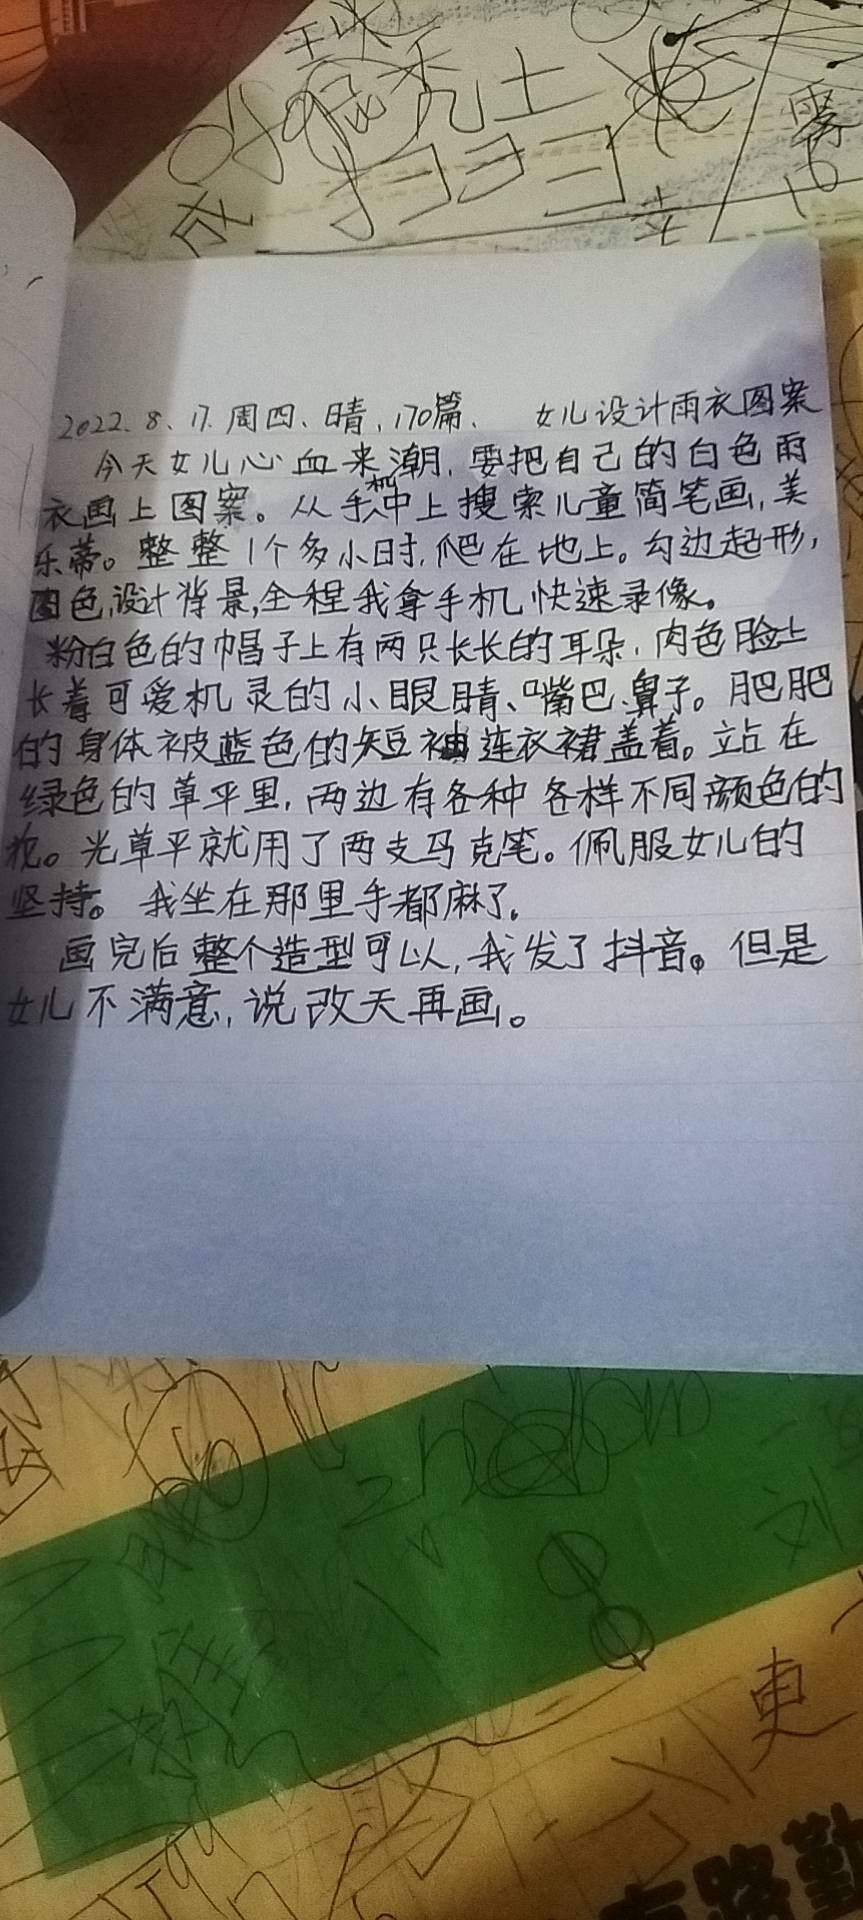 秃土
扫
雾
2022.8、17.周四、晴,170篇、 女儿设计雨衣图案
今天女儿心血来潮,要把自己的白色雨
衣画上图案。从手机中上搜索儿童简笔画,美
乐蒂。整整1个多小时,爬在地上。勾边起形,
图色,设计背景,全程我拿手机快速录像。
粉白色的帽子上有两只长长的耳朵,肉色脸上
长着可爱机灵的小眼睛、嘴巴、鼻子。肥肥
的身体被蓝色的短袖连衣裙盖着。站在
绿色的草平里,两边有各种各样不同颜色的
花。光草平就用了两支马克笔。佩服女儿的
坚持。我坐在那里手都麻了。
画完后整个造型可以,我发了抖音。但是
女儿不满意,说改天再画。
刘
更
路勤